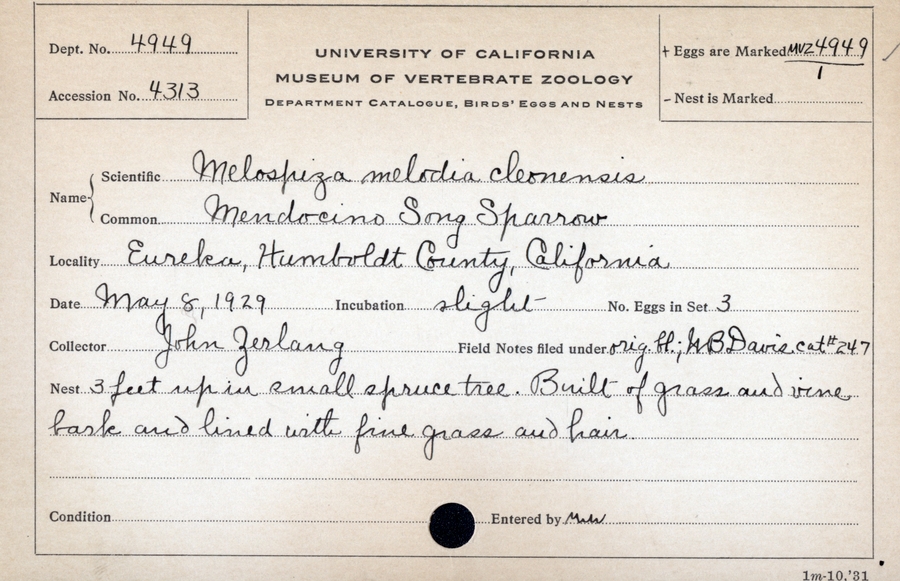 Dept. No. 4949
Accession No. 4313
UNIVERSITY OF CALIFORNIA
MUSEUM OF VERTEBRATE ZOOLOGY
DEPARTMENT CATALOGUE, BIRDS' EGGS AND NESTS
+ Eggs are Marked MVZ 4949
1
- Nest is Marked
Name
Scientific Melospiza melodia cleonensis
Common Mendocino Song Sparrow
Locality Eureka, Humboldt County, California
Date May 8, 1929 Incubation slight No. Eggs in Set 3
Collector John Zerlang Field Notes filed under orig. bl; W B Davis cat # 247
Nest 3 feet up in small spruce tree. Built of grass and vine
bark and lined with fine grass and hair.
Condition Entered by
1m-10.'31